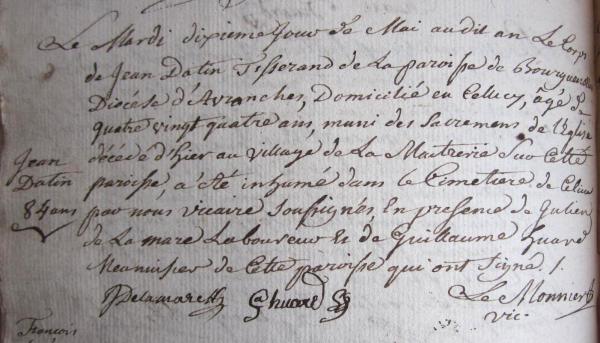 Le Mardi dixieme Jour de Mai audit an Le Corps
de Jean Datin Tisserand de La paroisse de
Diocèse d'Avranches, Domicilié en Cellecy, âgé De
quatre vingt quatre ans, muni des Sacremens de L'Eglise
décédé d'hier au village de La Maitrerie Sur Cette
Jean
Datin
84 ans
paroisse, a été inhumé dans le Cimetiere de
par nous vicaire Soussignés, En presence de Julien
de La mare Laboureur Et de Guillaume huard
Meunisier de Cette paroisse qui ont Signé ./.
Delamare G huard Le Monnier
vic.
François